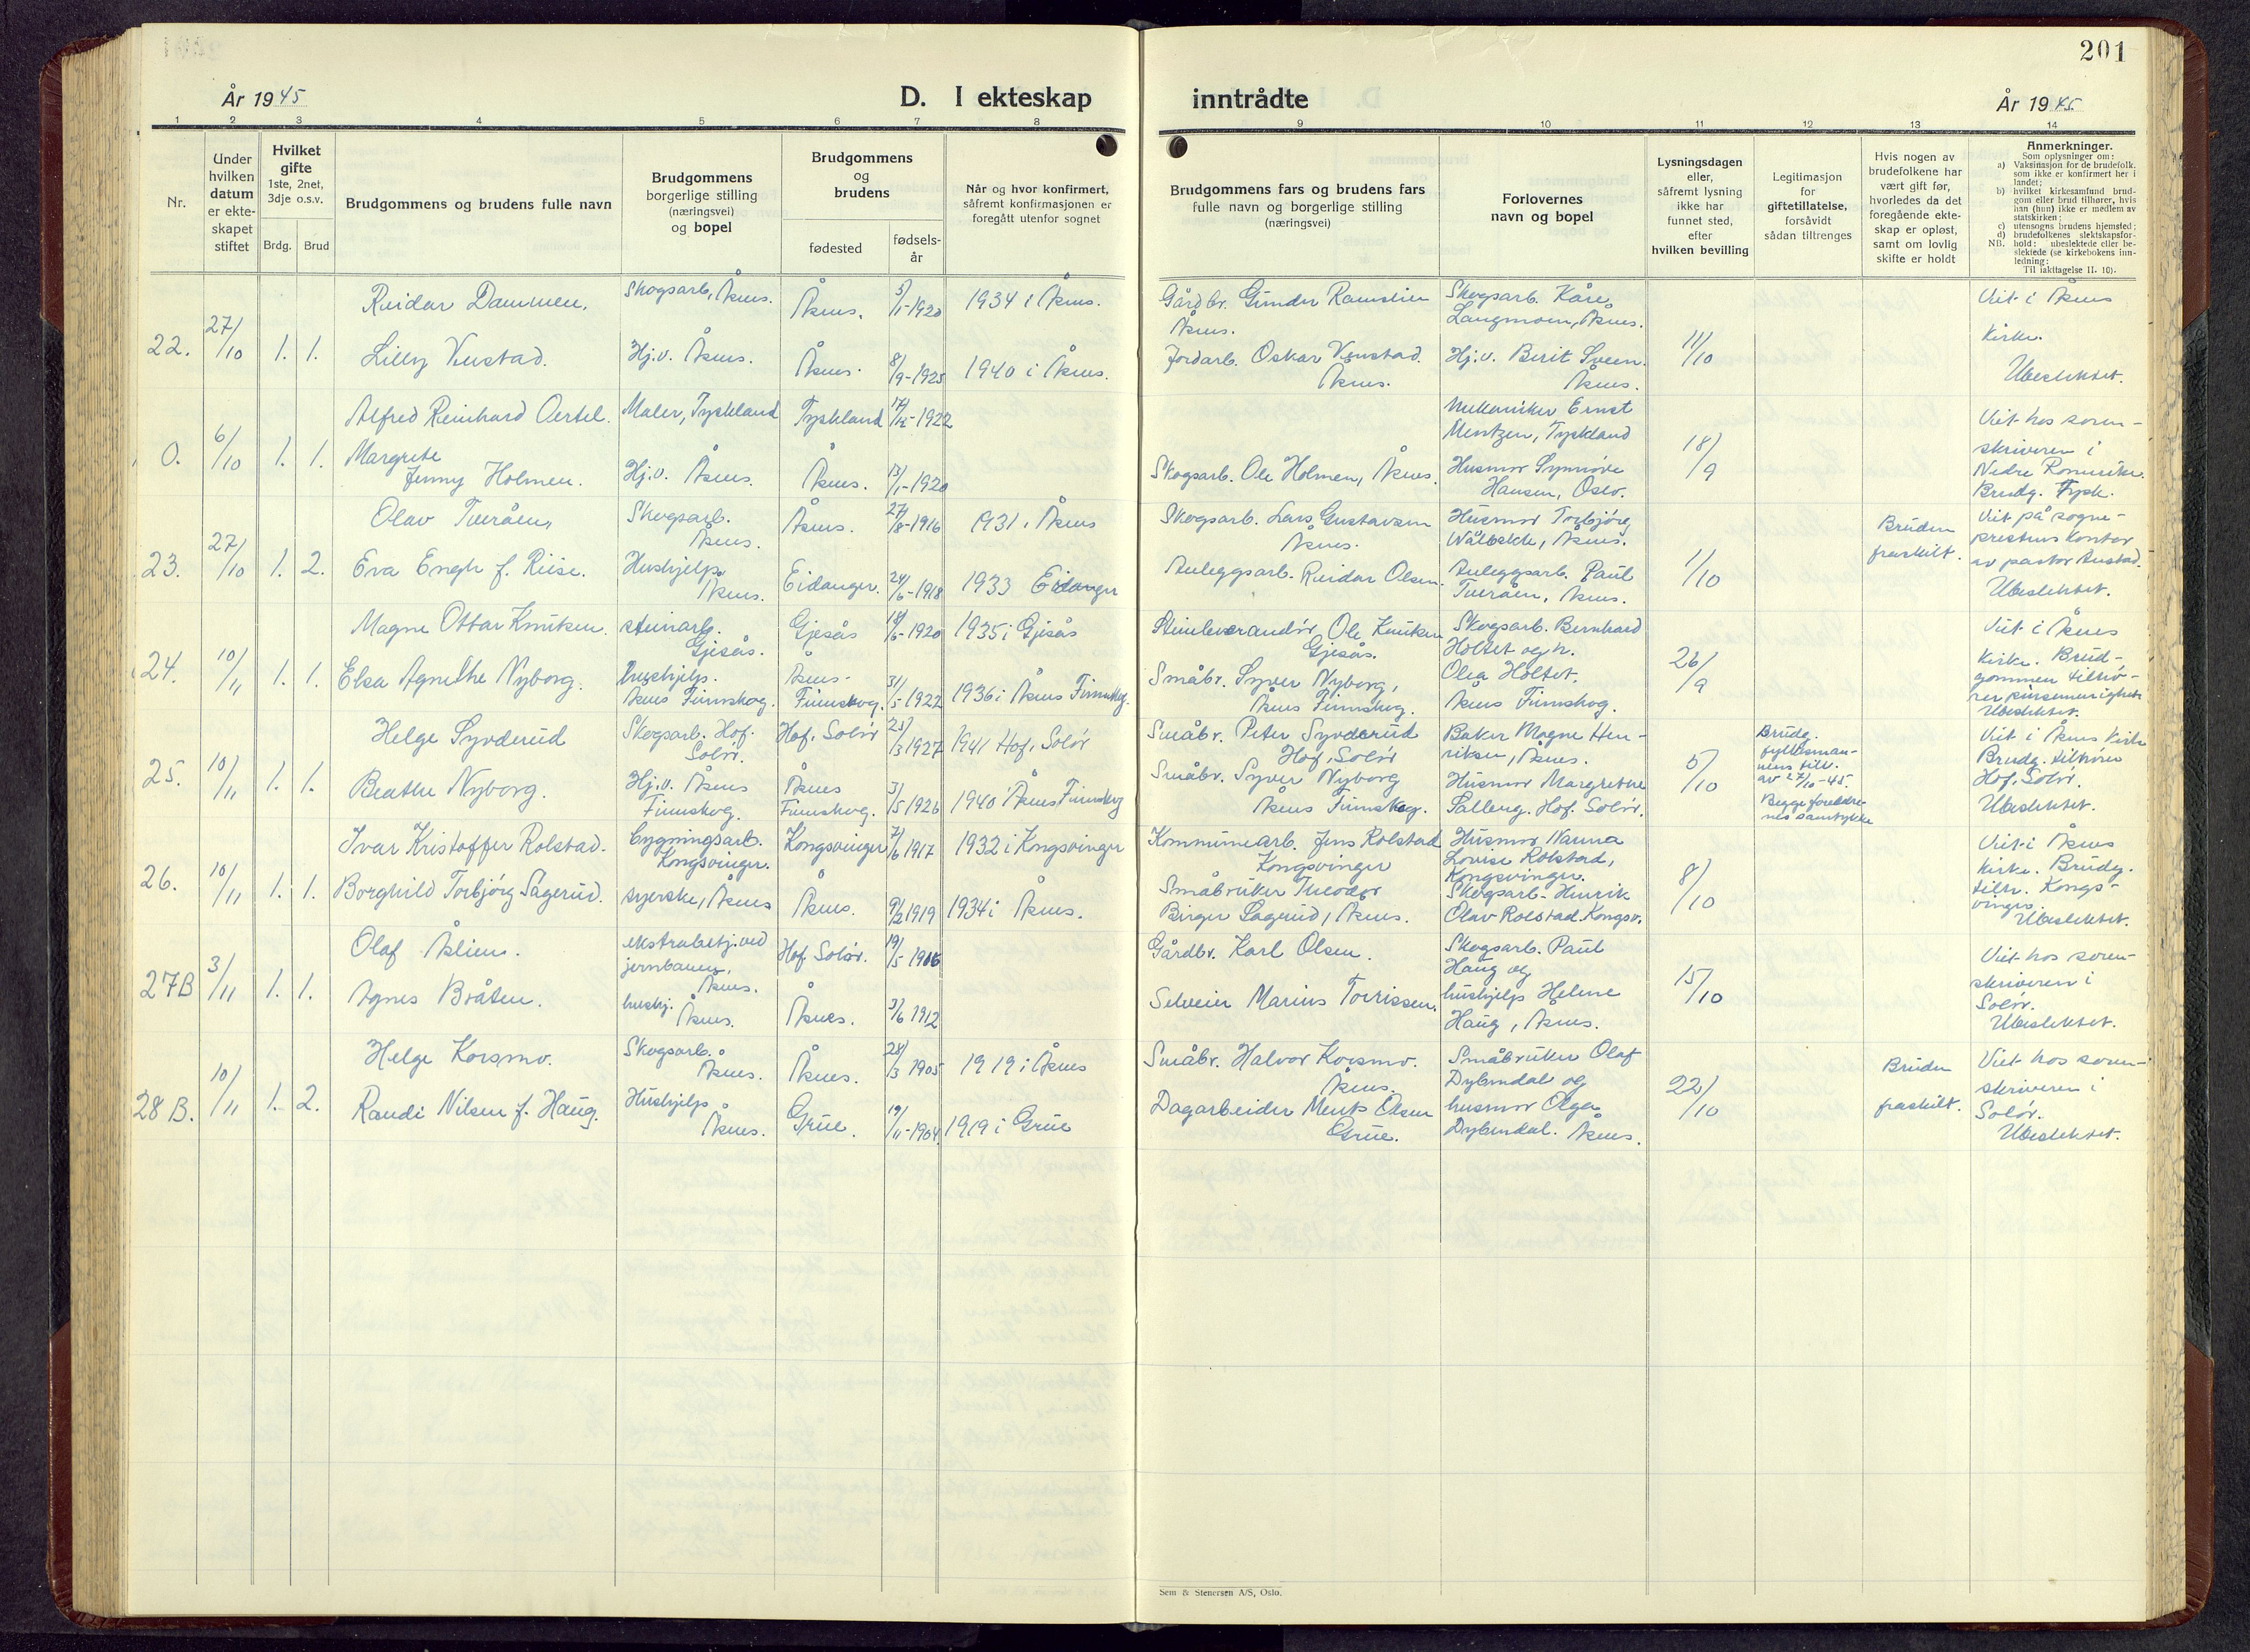 201
År 1945
D. I ekteskap
inntrådte
År 1945
1 2 3 4 5 6 7 8 9 10 11 12 13 14
Nr.
Under
hvilken
datum
er ekte-
skapet
stiftet
Hvilket
gifte
1ste, 2net,
3dje o.s.v.
Brdg. Brud
Brudgommens og brudens fulle navn
Brudgommens
borgerlige stilling
(næringsvei)
og bopel
Brudgommens
og
brudens
fødested
fødsels-
år
Når og hvor konfirmert,
såfremt konfirmasjonen er
foregått utenfor sognet
Brudgommens fars og brudens fars
fulle navn og borgerlige stilling
(næringsvei)
Forlovernes
navn og bopel
Lysningsdagen
eller,
såfremt lysning
ikke har
funnet sted,
efter
hvilken bevilling
Legitimasjon
for
giftetillatelse,
forsåvidt
sådan tiltrenges
Hvis nogen av
brudefolkene har
vært gift før,
hvorledes da det
foregående ekte-
skap er opløst,
samt om lovlig
skifte er holdt
Anmerkninger.
Som oplysninger om:
a) Vaksinasjon for de brudefolk.
som ikke er konfirmert her i
landet;
b) hvilket kirkesamfund brud-
gom eller brud tilhører, hvis
han (hun) ikke er medlem av
statskirken;
c) utensogns brudens hjemsted;
d) brudefolkenes slektskapsfor-
NB. hold: ubeslektede eller be-
slektede (se kirkebokens inn-
ledning:
Til iakttagelse II. 10).
22.
27/10
1. 1.
Reidar Dammen,
Skogsarb, Åsnes.
Åsnes.
5/1-1920
1934 i Åsnes.
Gårdbr. Gunder Ramslien
Åsnes.
Skogsarb. Kåre
Langmoen, Åsnes.
Lilly Venstad.
Hj.v. Åsnes.
Åsnes.
8/9-1925
1940 i Åsnes.
Jordarb. Oskar Venstad.
Åsnes.
Hj.v. Berit Sveen.
Åsnes.
11/10
Viet i Åsnes
Kirke.
Ubeslektet.
0.
6/10
1. 1.
Alfred Reinhard Oertel.
Maler, Tyskland
Tyskland
-1922
Mekaniker Ernst
Mentzen, Tyskland
Margrete
Jenny Holmen.
Hj.v. Åsnes.
Åsnes.
13/1-1920
Skogsarb. Ole Holmen, Åsnes.
Husmor Synnøve
Hansen, Oslo.
18/9
Viet hos soren-
skriveren i
Nedre Romerike.
Brudg. Tysk.
23.
27/10
1. 2.
Olav Tveråen,
Skogsarb.
Åsnes.
Åsnes.
27/8-1916
1931 i Åsnes
Skogsarb. Lars Gustavsen
Åsnes.
Husmor Torbjørg
Wålbekk, Åsnes.
Eva Engh f. Riise.
Hushjelp
Åsnes.
Eidanger.
24/6-1918
1933 Eidanger
Anleggsarb. Reidar Olsen.
Anleggsarb. Paul
Tveråen, Åsnes.
1/10
Bruden
fraskilt.
Viet på sogne-
prestens kontor
av pastor Anstad.
Ubeslektet.
24.
10/11
1. 1.
Magne Ottar Knutsen.
steinarb.
Gjesås.
Gjesås
18/6-1920
1935 i Gjesås
Steinleverandør Ole Knutsen
Gjesås.
Skogsarb. Bernhard
Holtet og h.
Elsa Agnethe Nyborg.
hushjelp.
Åsnes Finnskog.
Åsnes-
Finnskog.
31/5-1922
1936 i Åsnes Finnskog.
Småbr. Syver Nyborg,
Åsnes Finnskog.
Olea Holtet.
Åsnes Finnskog.
26/9
Viet i Åsnes
Kirke. Brud-
gommen tilhø-
rer pinsemenigheten
Ubeslektet.
25.
10/11
1. 1.
Helge Syvderud
Skogsarb. Hof.
Solør.
Hof, Solør
25/3 1927
1941 Hof, Solør
Småbr. Peter Syvderud
Hof, Solør
Baker Magne Hen-
riksen, Åsnes.
Beathe Nyborg.
Hj.v. Åsnes
Finnskog.
Åsnes
Finnskog.
3/5 1926
1940 i Åsnes Finnskog
Småbr. Syver Nyborg
Åsnes Finnskog.
Husmor Margrethe
Salberg. Hof. Solør.
5/10
Brudg.
fylkesman-
nens till.
av 27/10-45.
Begge foreldre-
nes samtykke
Viet i Åsnes Kirke
Brudg. tilhører
Hof, Solør.
Ubeslektet.
26.
10/11
1. 1.
Ivar Kristoffer Rolstad.
bygningsarb.
Kongsvinger.
Kongsvinger
7/6 1917
1932 i Kongsvinger
Kommunearb. Jens Rolstad
Kongsvinger
Husmor Nanna
Lovise Rolstad,
Kongsvinger.
Borghild Torbjørg Sagerud.
syerske, Åsnes
Åsnes.
9/2 1919
1934 i Åsnes.
Småbruker Theodor
Birger Sagerud, Åsnes.
Skogsarb. Henrik
Olav Rolstad Kongsv.
8/10
Viet i Åsnes
Kirke. Brudg.
tilh. Kongs-
vinger.
Ubeslektet.
27B
3/11
1. 1.
Olaf Åslien.
ekstrabetj. ved
jernbanen,
Åsnes.
Hof. Solør.
19/5 1906
Gårdbr. Karl Olsen.
Skogsarb. Paul
Haug og
Agnes Bråten.
hushj.
Åsnes.
Åsnes.
3/6 1912
Selveier Marius Torrissen.
hushjelp Helene
Haug, Åsnes.
15/10
Viet hos soren-
skriveren i
Solør.
Ubeslektet.
28 B.
10/11
1. 2.
Helge Korsmo.
Skogsarb.
Åsnes.
Åsnes.
28/3 1905
1919 i Åsnes
Småbr. Halvor Korsmo.
Åsnes.
Småbruker Olaf
Dybendal og
Randi Nilsen f. Haug.
Hushjelp
Åsnes.
Grue.
19/11-1904
1919 i Grue
Dagarbeider Ments Olsen
Grue.
husmor Olga
Dybendal. Åsnes.
22/10
Bruden
fraskilt.
Viet hos soren-
skriveren i
Solør.
Ubeslektet.
Sem & Stenersen A/S, Oslo.